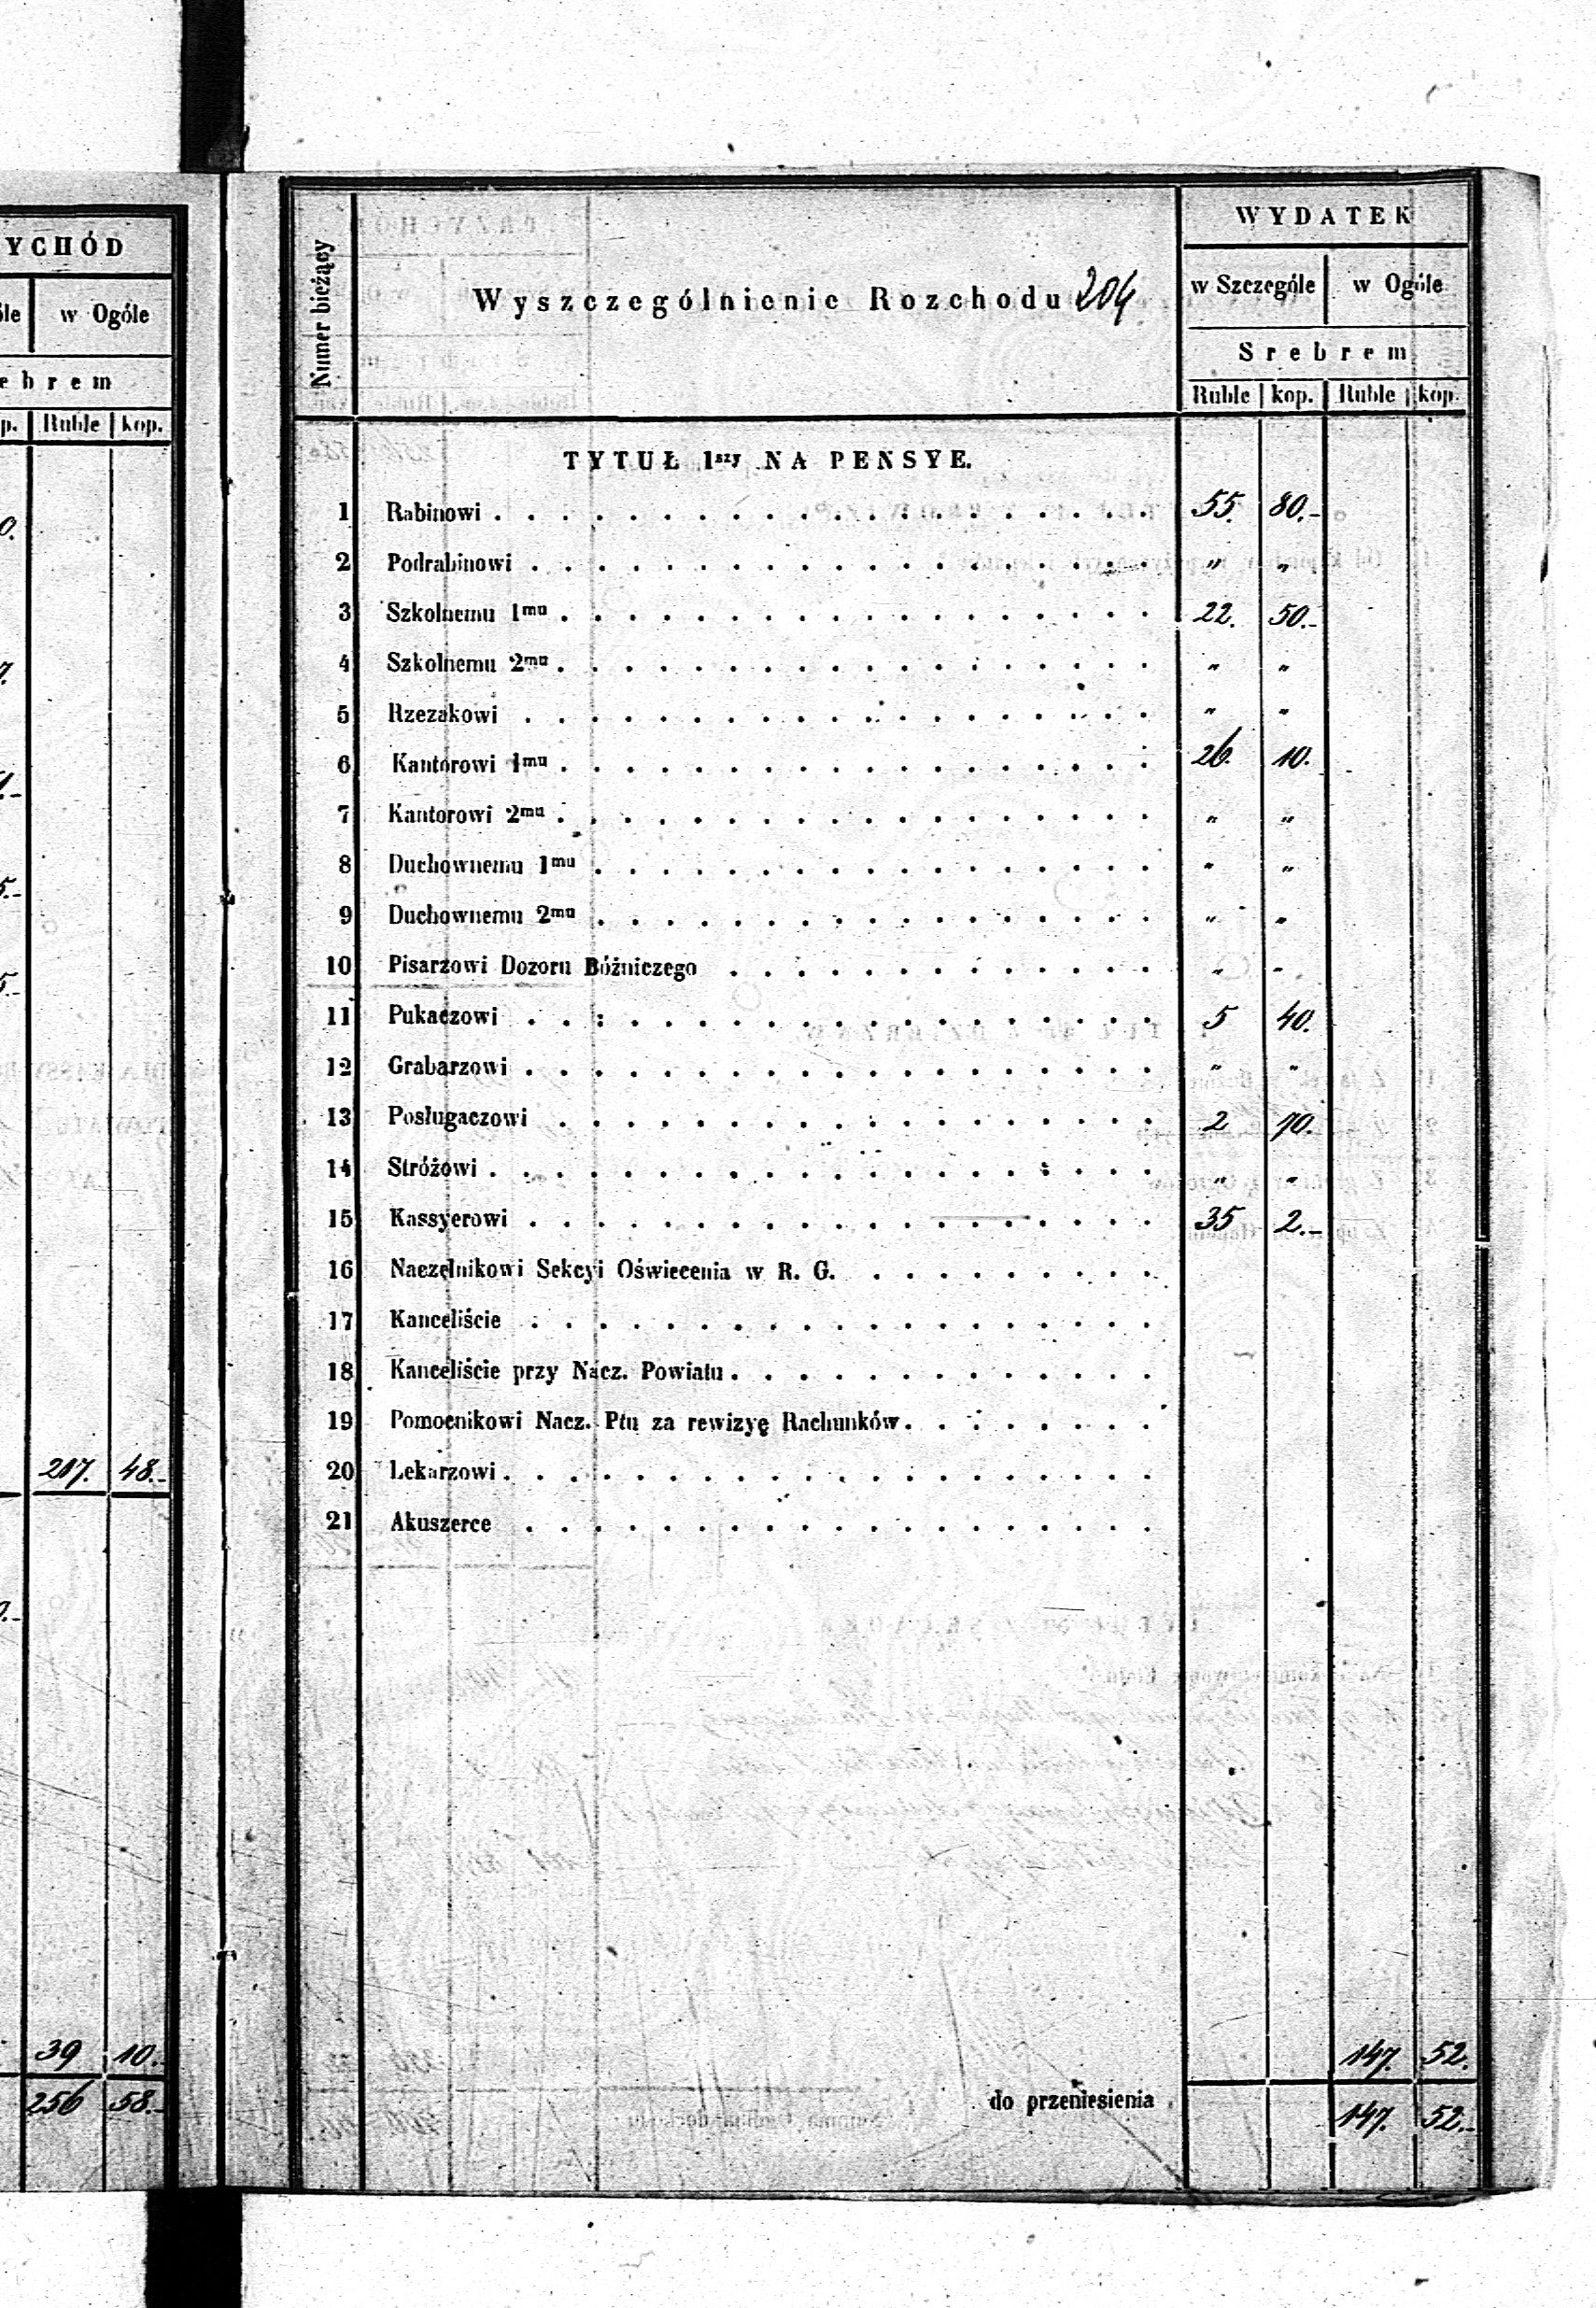 YCHÓD
w Ogóle
Ruble kop.
217. 48.-
39 10.
256 58.-
Numer bieżący
Wyszczególnienie Rozchodu 204
WYDATEK
w Szczególe w Ogóle
Srebrem
Ruble kop. Ruble kop.
TYTUŁ 1szy NA PENSYE.
1 Rabinowi . . . 55. 80.-
2 Podrabinowi . . . „ „
3 Szkolnemu 1mu . . . 22. 50.-
4 Szkolnemu 2mu . . . „ „
5 Rzezakowi . . . „ „
6 Kantorowi 1mu . . . 26. 10.
7 Kantorowi 2mu . . . „ „
8 Duchownemu 1mu . . . „ „
9 Duchownemu 2mu . . . „ „
10 Pisarzowi Dozoru Bóżniczego . . . „ „
11 Pukaczowi . . . 5 40.
12 Grabarzowi . . . „ „
13 Posługaczowi . . . 2 70.
14 Stróżowi . . . „ „
15 Kassyerowi . . . 35 2.-
16 Naczelnikowi Sekcyi Oświecenia w R. G. . . .
17 Kanceliście . . .
18 Kanceliście przy Nacz. Powiatu . . .
19 Pomocnikowi Nacz. Ptu za rewizyę Rachunków . . .
20 Lekarzowi . . .
21 Akuszerce . . .
147. 52.
do przeniesienia 147. 52.-